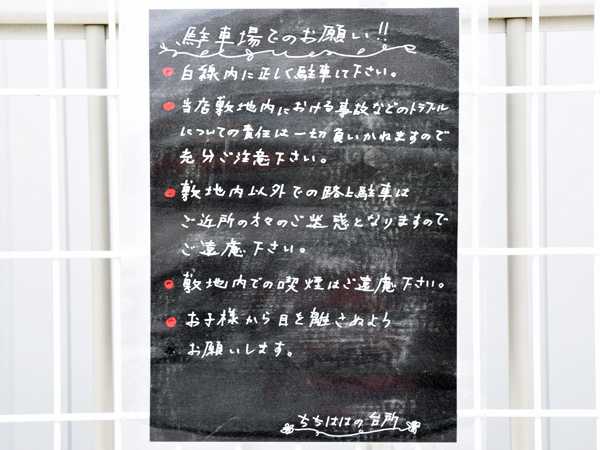 駐車場でのお願い!!
白線内に正しく駐車して下さい。
当店敷地内における事故などのトラブル
についての責任は一切負いかねますので
充分ご注意下さい。
敷地内以外での路上駐車は
ご近所の方々のご迷惑となりますので
ご遠慮下さい。
敷地内での喫煙はご遠慮下さい。
お子様から目を離さぬよう
お願いします。
ちちははの台所